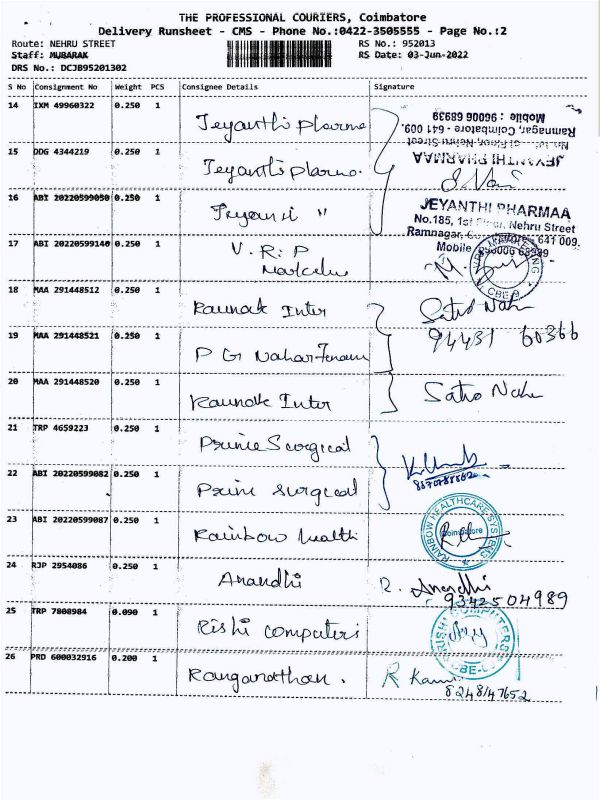 THE PROFESSIONAL COURIERS, Coimbatore
Delivery Runsheet - CMS - Phone No.:0422-3505555 - Page No.:2
Route: NEHRU STREET RS No.: 952013
Staff: MUBARAK RS Date: 03-Jun-2022
DRS No.: DCJB95201302
S No Consignment No Weight PCS Consignee Details Signature
14 IXM 49960322 0.250 1 Jeyanthi pharma
Mobile : 96006 68939
Ramnagar, Coimbatore - 641 009.
15 DDG 4344219 0.250 1 Jeyanthi pharma.
JEYANTHI PHARMAA
16 ABI 20220599050 0.250 1 Jeyanthi "
JEYANTHI PHARMAA
No.185, 1st Floor, Nehru Street
Ramnagar, Coimbatore - 641 009.
Mobile : 96006 68939
17 ABI 20220599140 0.250 1 V.R.P
Marketing
18 MAA 291448512 0.250 1 Raunak Inter
94431 60366
19 MAA 291448521 0.250 1 P G Nahar
20 MAA 291448520 0.250 1 Raunak Inter
21 TRP 4659223 0.250 1 Prime Surgical
22 ABI 20220599082 0.250 1 Prime surgical
23 ABI 20220599087 0.250 1 Rainbow health
RAINBOW HEALTHCARE SYSTEMS
Coimbatore
24 RJP 2954086 0.250 1 Anandhi R. Anandhi
9342504989
25 TRP 7808984 0.090 1 Rishi computers
RUSHI COMPUTERS
26 PRD 600032916 0.200 1 Ranganathan. R
8248147652